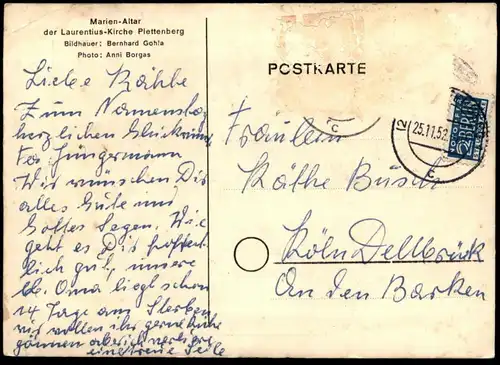 Marien-Altar
der Laurentius-Kirche Plettenberg
Bildhauer: Bernhard Gohla
Photo: Anni Borgas
POSTKARTE
Liebe Käthe
Zum Namenstag
herzlichen Glückwunsch
Fa Jüngermann
Wir wünschen Dir
alles Gute und
Gottes Segen. Wie
geht es Dir hoffent
lich gut, unsere
lb. Oma liegt schon
14 Tage am Sterben
wir wollen ihr gerne Ruhe
gönnen aber ich verliere
eine treue Seele
Fräulein
Käthe Busch
Köln Dellbrück
An den Barken
25.11.52
NOTOPFER
2 BERLIN
STEUERMARKE
c
c